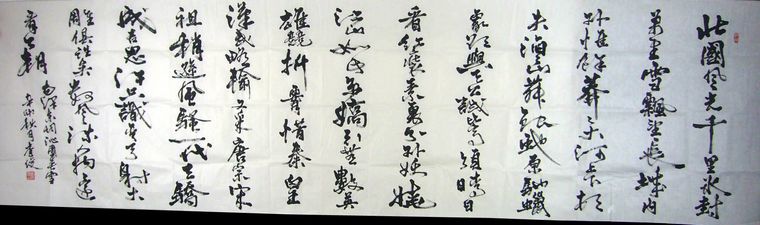 北國风光千里冰封
萬里雪飄望長城內
外惟餘莽莽大河上下頓
失滔滔山舞銀蛇原馳蠟
象欲與天公試比高須晴日
看紅裝素裹分外妖嬈
江山如此多嬌引無數英
雄競折腰惜秦皇
漢武略輸文采唐宗宋
祖稍遜風騷一代天驕
成吉思汗只識彎弓射大
雕俱往矣數風流人物還
看今朝
毛澤東詞沁園春雪
秋月